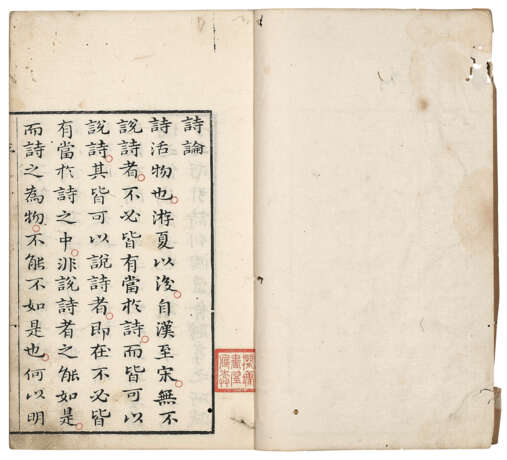 詩論
詩活物也游夏以後自漢至宋無不
說詩者不必皆有當於詩而皆可以
說詩其皆可以說詩者即在不必皆
有當於詩之中非說詩者之能如是
而詩之為物不能不如是也何以明